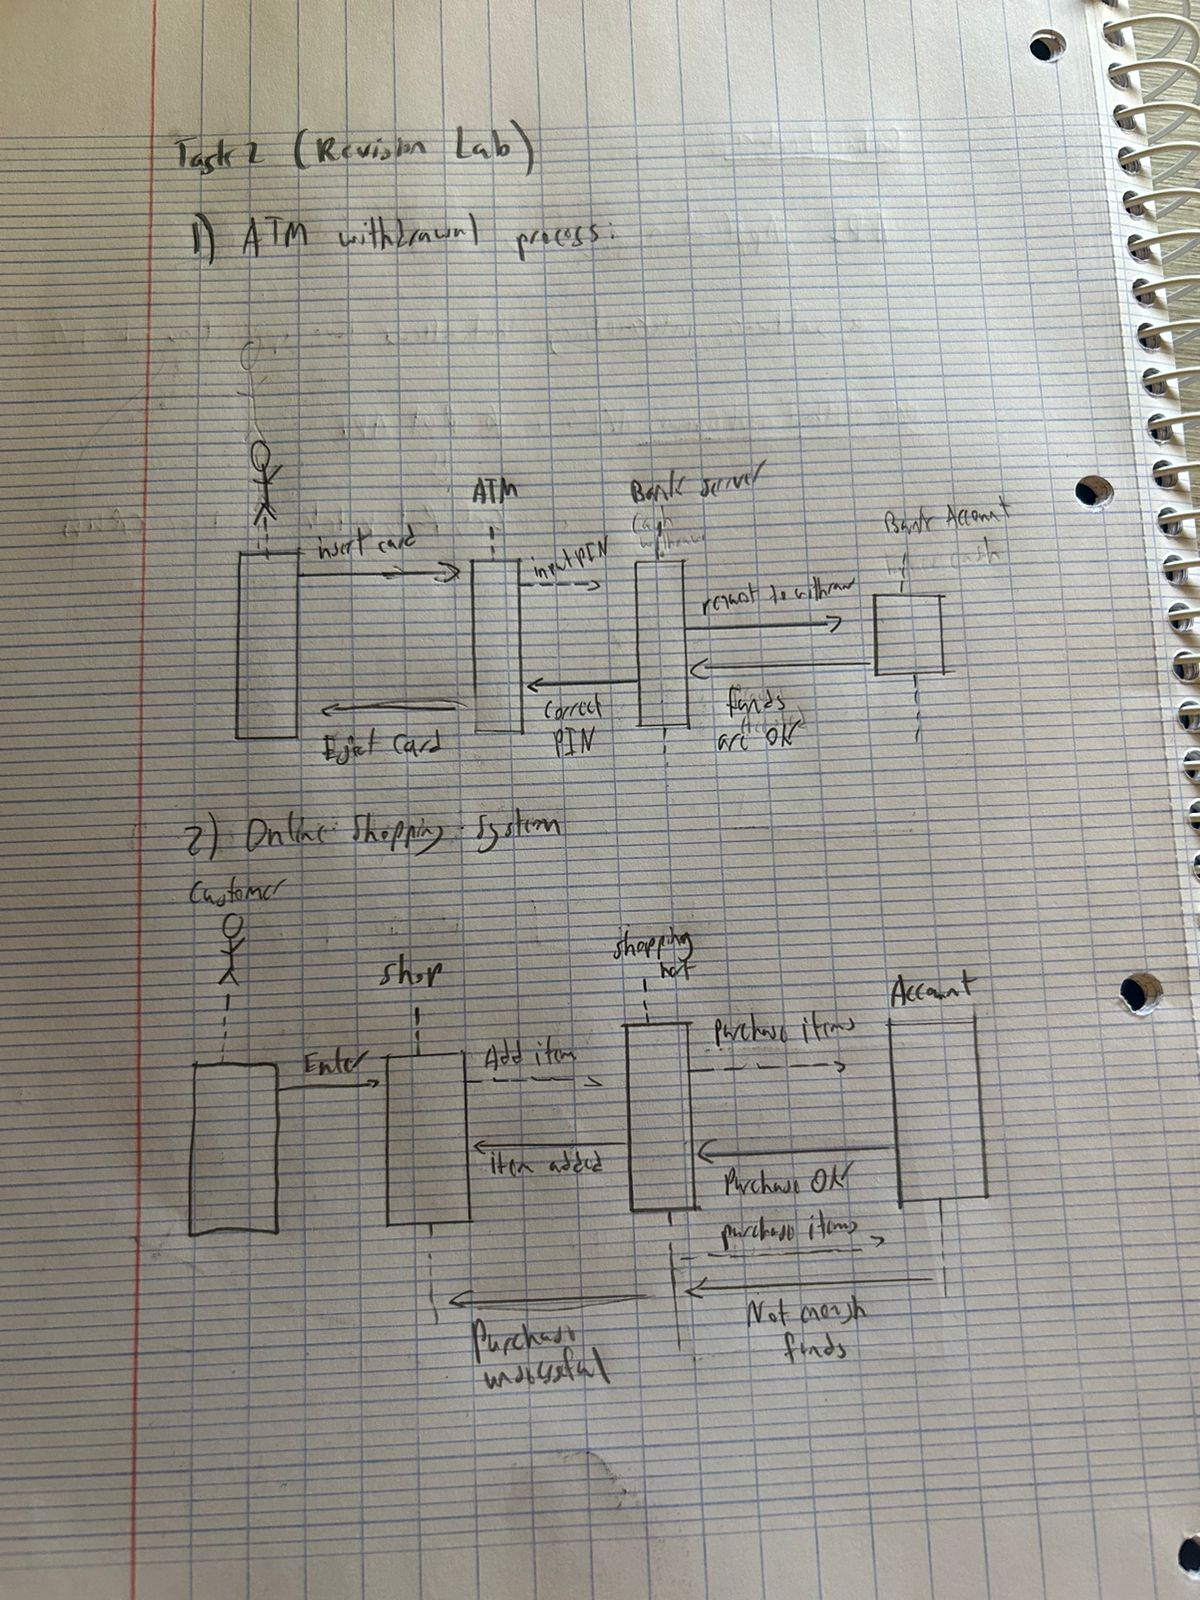 Task 2 (Revision Lab)
1) ATM withdrawal process:
ATM
Bank Server
Cash
withdraw
Bank Account
cash
insert card
input PIN
request to withdraw
Correct
PIN
funds
are OK
Eject Card
2) Online Shopping System
Customer
Shop
Shopping
Account
Enter
Add item
Purchase items
item added
Purchase OK
purchase items
Not enough
funds
Purchase